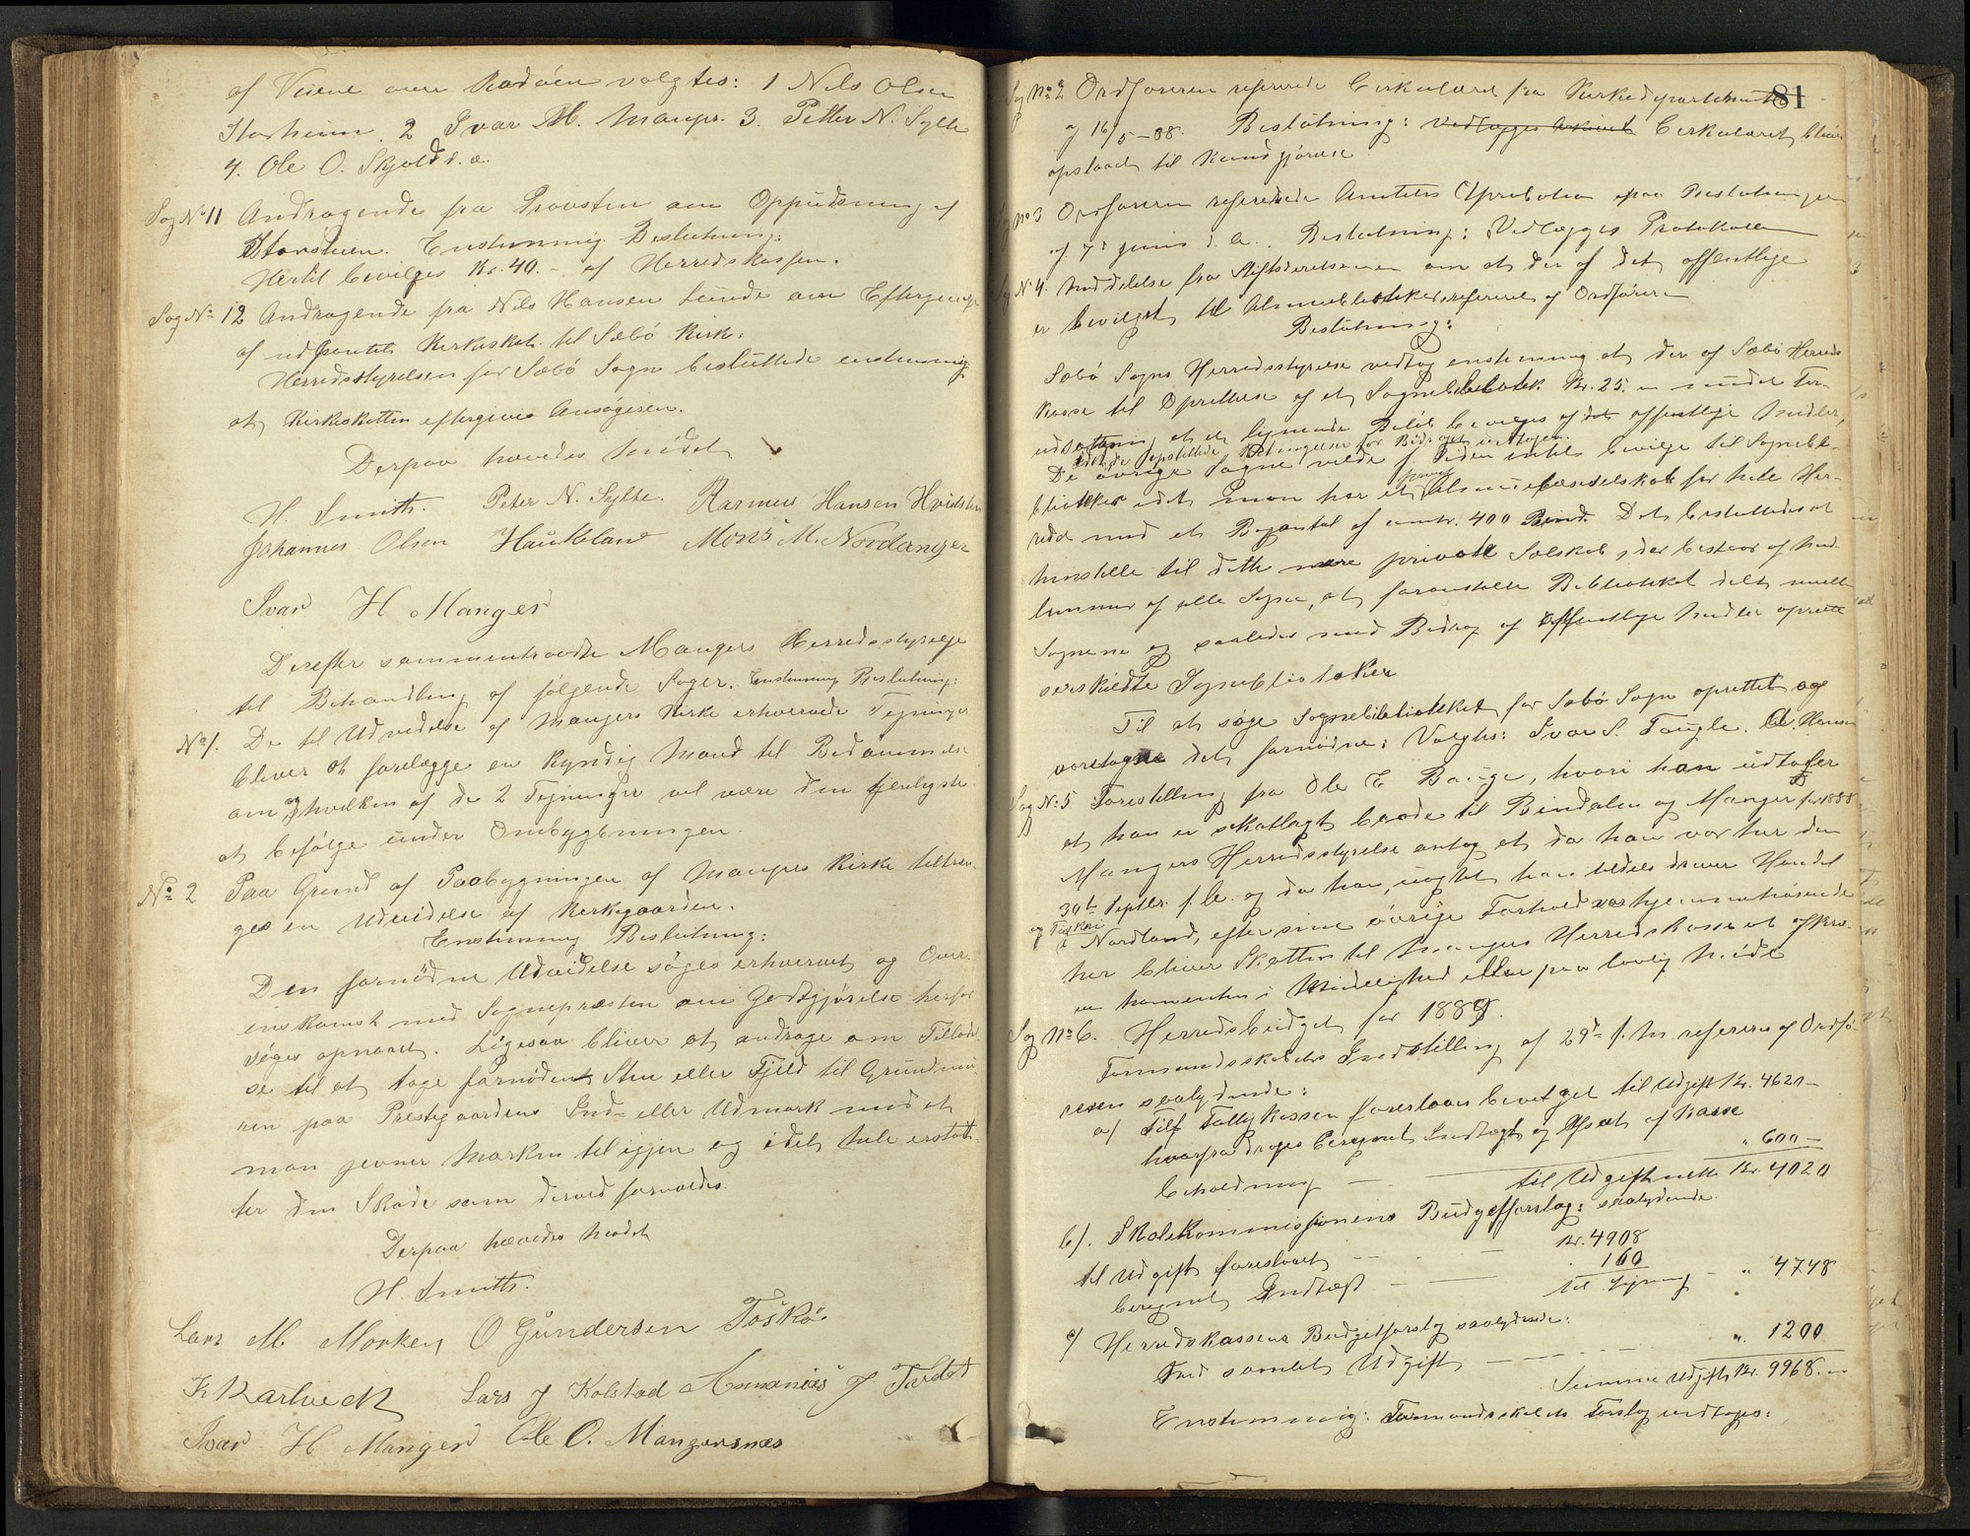 af Veiene over Radøen valgtes: 1 Nils Olsen
Storheim. 2 Ivar M. Manger. 3. Petter N. Sylte
4. Ole O. Skjold d. æ.
Sag No 11 Andragende fra Provsten om Oppudsning af
Storstuen. Enstemmig Beslutning:
Hertil bevilges Kr. 40.- af Herredskassen.
Sag No 12 Andragende fra Nils Hansen Lunde om Eftergivelse
af udpantet Kirkeskat til Sæbö Kirke.
Herredsstyrelsen for Sæbö Sogn besluttede enstemmig
at Kirkeskatten eftergives Ansögeren.
Derpaa hævedes Mödet
H. Smith. Peter N. Sylte. Rasmus Hansen Hvidsten
Johannes Olsen Haukeland Mons M. Nordanger
Ivar H Manger
Derefter sammentraadte Mangers Herredsstyrelse
til Behandling af følgende Sager. Enstemmig Beslutning:
No 1. De til Udvidelse af Mangers Kirke erhvervede Tegninger
bliver at forelægge en kyndig Mand til Bedömmelse
om og hvilken af de 2 Tegninger vel være den tjenligste
at befölge under Ombygningen.
No 2 Paa Grund af Paabygningen af Mangers Kirke tiltræn-
ges en Udvidelse af Kirkegaarden.
Enstemmig Beslutning:
Den fornödne Udvidelse söges erhvervet og Over-
enskomst med Sognepræsten om Godtgjörelse herfor
söges opnaaet. Ligesaa bliver at andrage om Tilladel-
se til at tage fornödent Sten eller Fjeld til Grundmu-
ren paa Prestegaardens Ind- eller Udmark med at
man jevner Marken til igjen og idet hele erstat-
ter den Skade som derved forvoldes.
Derpaa hævedes Mödet
H. Smith.
Lars M Morken O Gundersen Toskö.
K Kartveit Lars J Kolstad Ananias J Tvedt
Ivar H Manger Ole O. Mangersnes
81
Sag No 2 Ordföreren refererede Cirkulæret fra Kirkedepartementet
af 16/5-88. Beslutning: Vedlægges Arkivet Cirkulæret bliver
opslaaet til Kundgjörelse
Sag No 3 Ordföreren refererede Amtets Aprobation paa Beslutningen
af 7de Junis d. A.. Beslutning: Vedlægges Protokollen
Sag No 4. Meddelelse fra Stiftsdirektionen om at der af det offentlige
er bevilget til Almuebibliotheker refereret af Ordföreren
Beslutning:
Sæbö Sogns Herredsstyrelse vedtog enstemmig at der af Sæbö Herreds
kasse til Oprettelse af et Sognebibliothek Kr. 25. - under For-
udsætning at et lignende Belöb bevilges af det offentlige Midler,
idet de opstillede Betingelser for Bidraget vedtages.
De övrige Sogne vilde f Tiden intet bevilge til Sognebi-
bliotheker idet man har et privat Almuelæseselskab for hele Her-
redet med et Bogantal af omtr. 400 Bind. Det besluttedes at
henstille til dette private Selskab, der bestaar af Med-
lemmer af alle Sogne, at foranstalte Bibliotheket delt mellem
Sognene og saaledes med Bidrag af offentlige Midler oprette
særskildte Sognebibliotheker
Til at söge Sognebibliotheket for Sæbö Sogn oprettet og
foretage det fornödne: Valgtes: Ivar S. Taugle. A. Hansen
Sag No 5 Forestilling fra Ole E Bauge, hvori han udtaler
at han er skatlagt baade til Bindalen og Manger for 1888
Mangers Herredsstyrelse antog at da han var her den
30te Septbr. f. A. og da han, uagtet han tildels driver Handel
og Fiskeri
i Nordland, efter sine övrige Forhold er hjemmehörende
her bliver Skatten til Mangers Herredskasse at afkræ-
ve hamenten i Mindelighed eller paa lovlig Maade
Sag No 6. Herredsbudget for 1889.
Formandskabets Indstilling af 29de f. M. refereres af Ordfö-
reren saalydende:
a) Til Fattigkassen foreslaaes bevilget til Udgift Kr. 4620-
hvorfra drages beregnet Indtægt og Afsæt af Kasse
beholdning — — " 600 -
til Udgift netto Kr. 4020
b). Skolekommissionens Budgetforslag: saalydende.
til Udgift foreslaaet — — Kr. 4908
beregnet Indtægt — — 160
til Ligning - " 4748
c) Herredskassens Budgetforslag saalydende:
Med samlet Udgift — — — " 1200
Summa Udgift Kr. 9968.-
Enstemmig: Formandskabets Forslag vedtages: